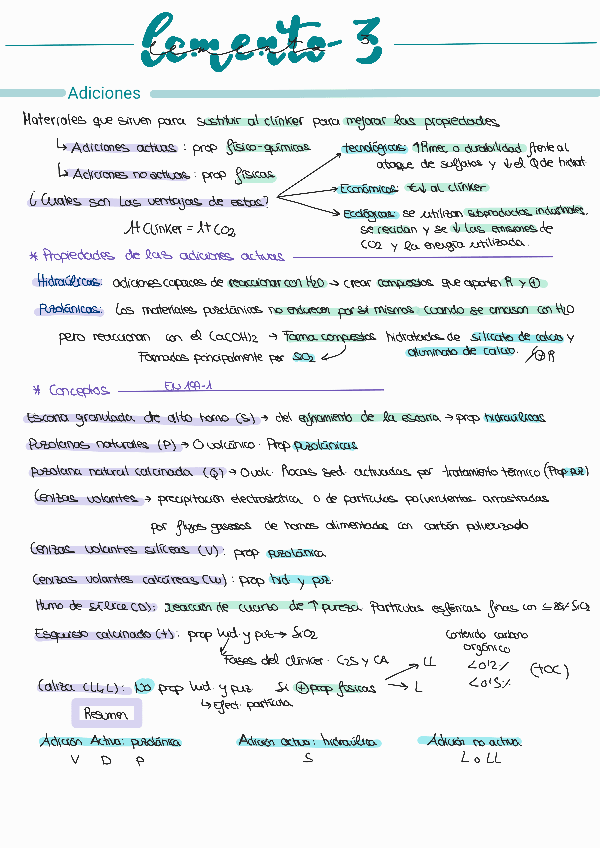 Cemento 3
Adiciones
Materiales que sirven para sustituir al clínker para mejorar las propiedades
↳ Adiciones activas : prop físico-químicas
↳ Adiciones no activas : prop físicas
¿Cuales son las ventajas de estas?
1t Clinker = 1t CO2
tecnológicas: ↑Rmec o durabilidad frente al
ataque de sulfatos y ↓el Q de hidrat
Económicas: €↓ al clinker
Ecológicas: se utilizan subproductos industriales,
se reciclan y se ↓ las emisiones de
CO2 y la energía utilizada.
* Propiedades de las adiciones activas
Hidráulicas: adiciones capaces de reaccionar con H2O → crear compuestos que aporten R y ⊕
Puzolánicas: Los materiales puzolánicos no endurecen por si mismos cuando se amasan con H2O
pero reaccionan con el Ca(OH)2 → Forma compuestos hidratados de silicato de calcio y
Formados principalmente por SiO2 aluminato de calcio. ⊕R
* Conceptos EN 197-1
Escoria granulada de alto horno (S) → del enfriamiento de la escoria → prop hidraúlicas
Puzolanas naturales (P) → O volcánico. Prop puzolánicas
Puzolana natural calcinada (Q) → O volc. Rocas sed. activadas por tratamiento térmico (Prop puz)
Cenizas volantes → precipitación electrostática o de partículas pulverulentas arrastradas
por flujos gaseosos de hornos alimentados con carbón pulverizado
Cenizas volantes silíceas (V) : prop puzolánica
Cenizas volantes calcáreas (W) : prop hid y puz.
Humo de sílice (D): reacción de cuarzo de ↑ pureza Partículas esféricas finas con ≤ 85% SiO2
Esquisto calcinado (t) : prop hid. y puz → SiO2
Fases del clinker. C2S y CA
Contenido carbono
orgánico
LL <0'2%
L <0'5%
(TOC)
Caliza (LL, L) : No prop hid. y puz Si ⊕ prop físicas
↳ efect. partícula
Resumen
Adición Activa: puzolánica Adición activa: hidraúlica Adición no activa
V D P S L o LL